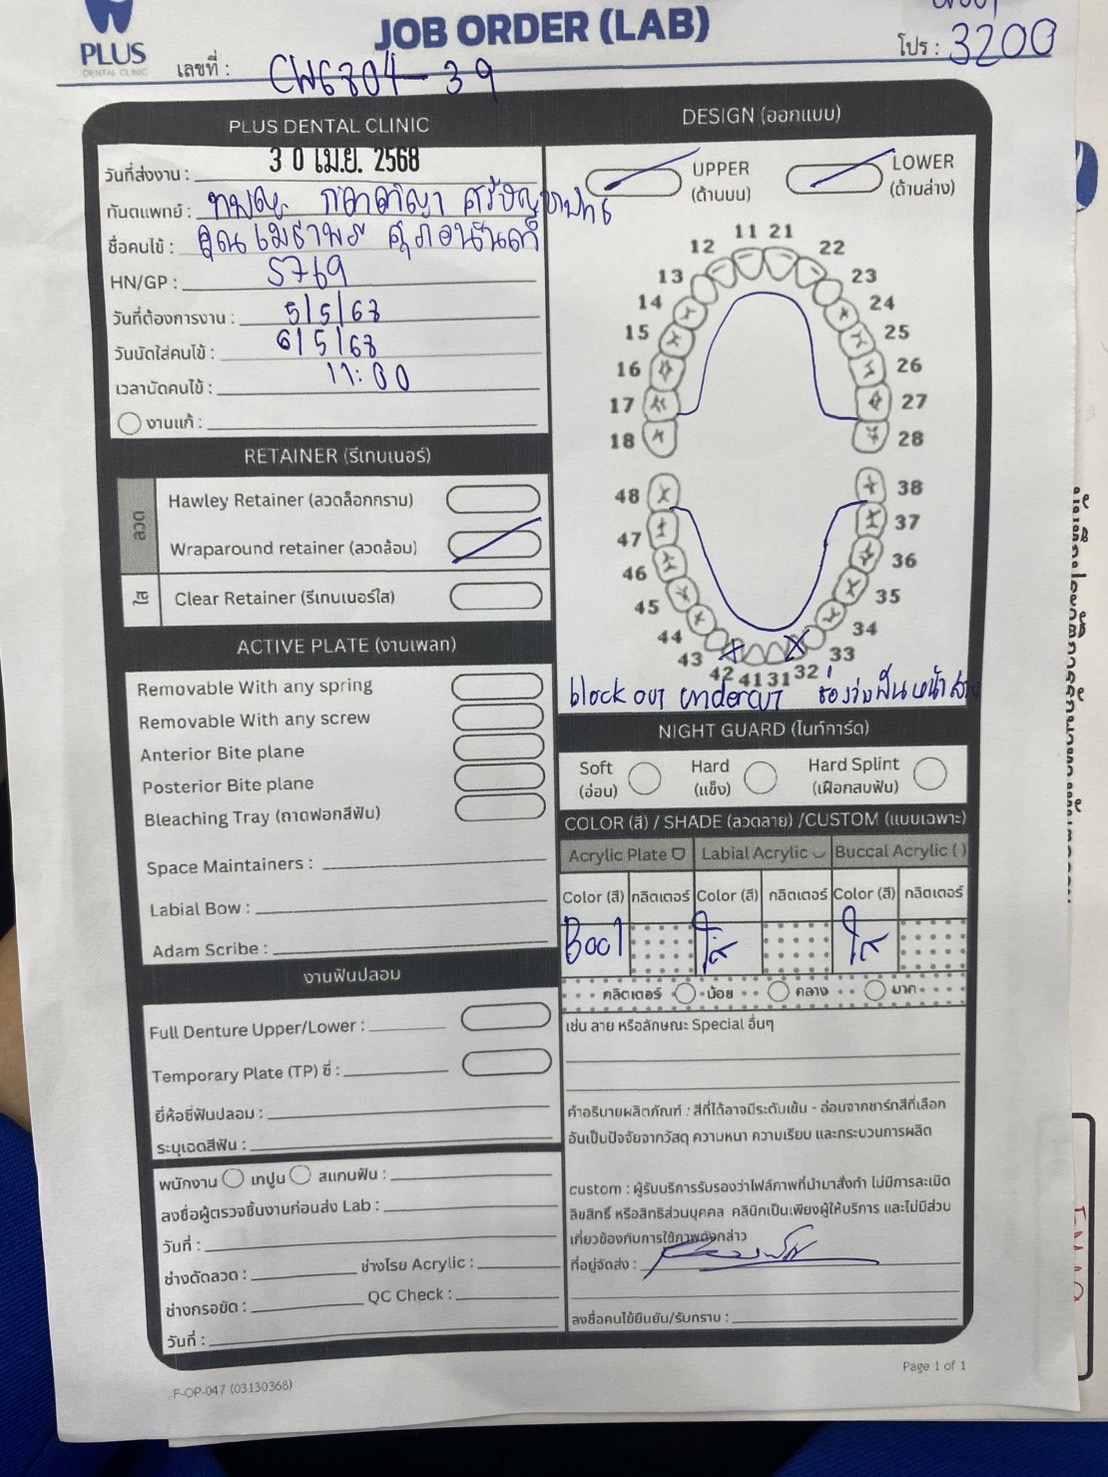 PLUS
DENTAL CLINIC
JOB ORDER (LAB)
เลขที่ : CW6804-39
โปร : 3200
PLUS DENTAL CLINIC
วันที่ส่งงาน : 30 เม.ย. 2568
ทันตแพทย์ : ทพญ.
ชื่อคนไข้ : คุณ
HN/GP : 5769
วันที่ต้องการงาน : 5/5/68
วันนัดใส่คนไข้ : 6/5/68
เวลานัดคนไข้ : 11:00
งานแก้ :
RETAINER (รีเทนเนอร์)
ลวด
Hawley Retainer (ลวดล็อกกราม)
Wraparound retainer (ลวดล้อม)
ใส
Clear Retainer (รีเทนเนอร์ใส)
ACTIVE PLATE (งานเพลท)
Removable With any spring
Removable With any screw
Anterior Bite plane
Posterior Bite plane
Bleaching Tray (ถาดฟอกสีฟัน)
Space Maintainers :
Labial Bow :
Adam Scribe :
งานฟันปลอม
Full Denture Upper/Lower :
Temporary Plate (TP) ซี่ :
ยี่ห้อซี่ฟันปลอม :
ระบุเฉดสีฟัน :
พนักงาน เทปูน สแกนฟัน :
ลงชื่อผู้ตรวจชิ้นงานก่อนส่ง Lab :
วันที่ :
ช่างดัดลวด : ช่างโรย Acrylic :
ช่างกรอขัด : QC Check :
วันที่ :
F-OP-047 (03130368)
DESIGN (ออกแบบ)
UPPER
(ด้านบน)
LOWER
(ด้านล่าง)
11 21
12 22
13 23
14 24
15 25
16 26
17 27
18 28
48 38
47 37
46 36
45 35
44 34
43 33
42 41 31 32
block out undercut ช่องว่างฟันหน้าล่าง
NIGHT GUARD (ไนท์การ์ด)
Soft
(อ่อน)
Hard
(แข็ง)
Hard Splint
(เฝือกสบฟัน)
COLOR (สี) / SHADE (ลวดลาย) /CUSTOM (แบบเฉพาะ)
Acrylic Plate Labial Acrylic Buccal Acrylic ( )
Color (สี) กลิตเตอร์ Color (สี) กลิตเตอร์ Color (สี) กลิตเตอร์
B001 ใส ใส
กลิตเตอร์ น้อย กลาง มาก
เช่น ลาย หรือลักษณะ Special อื่นๆ
คำอธิบายผลิตภัณฑ์ : สีที่ได้อาจมีระดับเข้ม - อ่อนจากชาร์ทสีที่เลือก
อันเป็นปัจจัยจากวัสดุ ความหนา ความเรียบ และกระบวนการผลิต
custom : ผู้รับบริการรับรองว่าไฟล์ภาพที่นำมาสั่งทำ ไม่มีการละเมิด
ลิขสิทธิ์ หรือสิทธิส่วนบุคคล คลินิกเป็นเพียงผู้ให้บริการ และไม่มีส่วน
เกี่ยวข้องกับการใช้ภาพดังกล่าว
ที่อยู่จัดส่ง :
ลงชื่อคนไข้ยืนยัน/รับทราบ :
Page 1 of 1